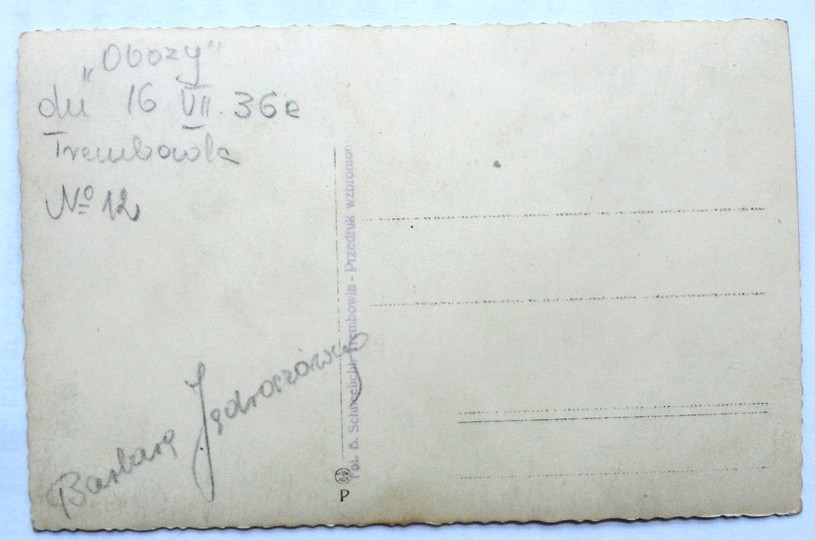 „Obozy"
dn 16 VII. 36 r
Trembowla
No 12
Barbarę Jędraczównę
Fot. B. Schneelicht, Trembowla - Przedruk wzbronion
P